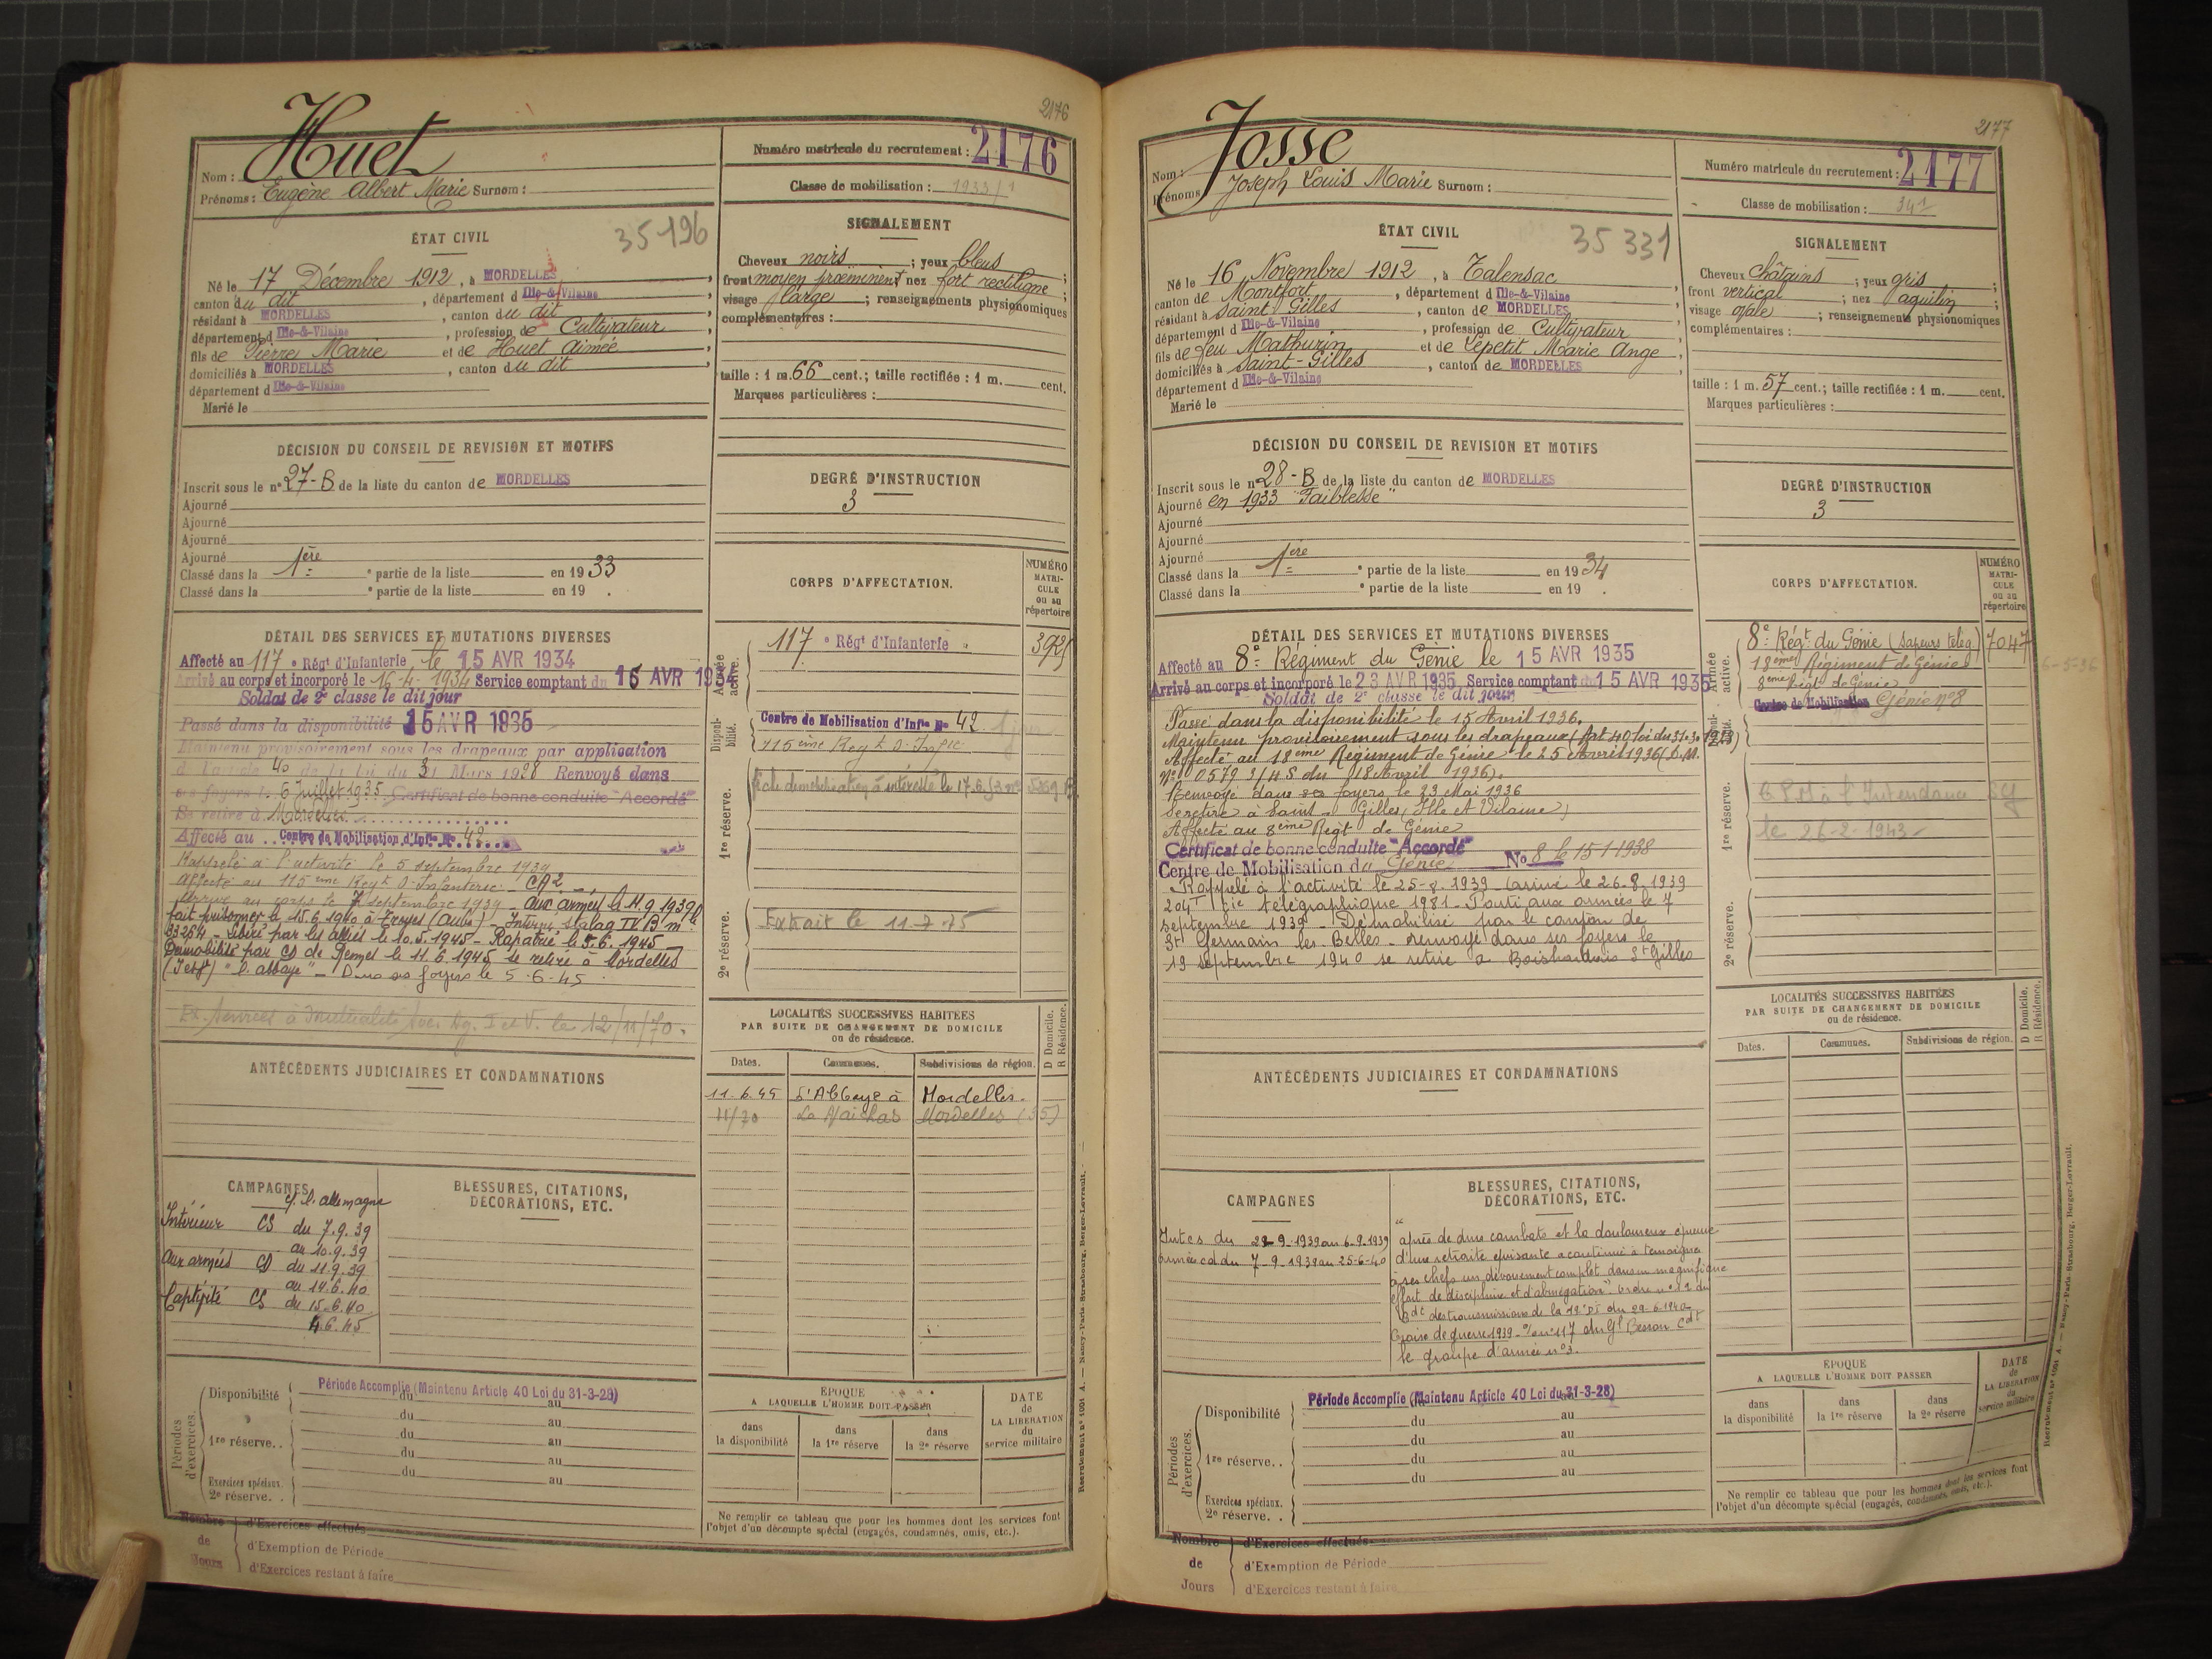 2176
Huet
Nom :
Prénoms : Eugène Albert Marie Surnom :
Numéro matricule du recrutement : 2176
Classe de mobilisation : 1933/1
ÉTAT CIVIL
35196
Né le 17 Décembre 1912, à MORDELLES,
canton du dit, département d Ille-&-Vilaine
résidant à MORDELLES, canton du dit,
département d Ille-&-Vilaine, profession de Cultivateur
fils de Pierre Marie et de Huet Aimée,
domiciliés à MORDELLES, canton du dit,
département d Ille-&-Vilaine
Marié le
SIGNALEMENT
Cheveux noirs ; yeux bleus ;
front moyen proéminent nez fort rectiligne ;
visage large ; renseignements physionomiques
complémentaires :
taille : 1 m. 66 cent.; taille rectifiée : 1 m. cent.
Marques particulières :
DÉCISION DU CONSEIL DE REVISION ET MOTIFS
Inscrit sous le n° 27-B de la liste du canton de MORDELLES
Ajourné
Ajourné
Ajourné
Ajourné
Classé dans la 1ère partie de la liste en 1933
Classé dans la e partie de la liste en 19 .
DEGRÉ D'INSTRUCTION
3
DÉTAIL DES SERVICES ET MUTATIONS DIVERSES
Affecté au 117e Régt d'Infanterie le 15 AVR 1934
Arrivé au corps et incorporé le 16-4-1934 Service comptant du 15 AVR 1934
Soldat de 2e classe le dit jour
Passé dans la disponibilité 15 AVR 1935
Maintenu provisoirement sous les drapeaux par application
de l'article 40 de la loi du 31 Mars 1928 Renvoyé dans
ses foyers le 6 juillet 1935 Certificat de bonne conduite "Accordé"
Se retire à Mordelles
Affecté au Centre de Mobilisation d'Infie No 42
Rappelé à l'activité le 5 septembre 1939
Affecté au 115ème Régt d'Infanterie - CA2
Arrivé au corps le 7 septembre 1939 - aux armées le 11.9.1939
fait prisonnier le 15.6.1940 à Troyes (Aube) - Interné stalag IV B mle
33264 - Libéré par les alliés le 10.5.1945 - Rapatrié le 5.6.1945
Démobilisé par CD de Rennes le 11.6.1945 se retire à Mordelles
(I et V) "l'abbaye" - Dans ses foyers le 5-6-45
Ex. services à mutualité soc. Ag. I et V. le 12/11/70.
CORPS D'AFFECTATION.
NUMÉRO MATRICULE ou au répertoire
Armée active.
117e Régt d'Infanterie
Disponibilité.
Centre de Mobilisation d'Infie No 42
115ème Régt d'Infie
1re réserve.
2e réserve.
Extrait le 11-7-75
ANTÉCÉDENTS JUDICIAIRES ET CONDAMNATIONS
LOCALITÉS SUCCESSIVES HABITÉES
PAR SUITE DE CHANGEMENT DE DOMICILE
ou de résidence.
D Domicile.
R Résidence.
Dates. Communes. Subdivisions de région.
11-6-45 L'Abbaye à Mordelles.
11/70 Mordelles (35)
CAMPAGNES
c/ l'allemagne
Intérieur CS du 7.9.39
au 10.9.39
aux armées CD du 11.9.39
au 14.6.40
Captivité CS du 15.6.40
4.6.45
BLESSURES, CITATIONS,
DÉCORATIONS, ETC.
Périodes d'exercices.
Disponibilité Période Accomplie (Maintenu Article 40 Loi du 31-3-28)
du au
du au
1re réserve. . du au
du au
du au
Exercices spéciaux.
2e réserve. .
ÉPOQUE
A LAQUELLE L'HOMME DOIT PASSER
dans la disponibilité
dans la 1re réserve
dans la 2e réserve
DATE de LA LIBÉRATION du service militaire
Ne remplir ce tableau que pour les hommes dont les services font
l'objet d'un décompte spécial (engagés, condamnés, omis, etc.).
Nombre de Jours
d'Exercices effectués
d'Exemption de Période
d'Exercices restant à faire
Recrutement n° 1051 A. — Nancy-Paris-Strasbourg, Berger-Levrault.
2177
Josse
Nom :
Prénoms Joseph Louis Marie Surnom :
Numéro matricule du recrutement : 2177
Classe de mobilisation : 341
ÉTAT CIVIL
35 331
Né le 16 Novembre 1912, à Talensac,
canton de Montfort, département d Ille-&-Vilaine
résidant à Saint Gilles, canton de MORDELLES,
département d Ille-&-Vilaine, profession de Cultivateur
fils de feu Mathurin et de Lepetit Marie Ange,
domiciliés à Saint-Gilles, canton de MORDELLES,
département d Ille-&-Vilaine
Marié le
SIGNALEMENT
Cheveux Châtains ; yeux gris ;
front vertical ; nez aquilin ;
visage ovale ; renseignements physionomiques
complémentaires :
taille : 1 m. 57 cent.; taille rectifiée : 1 m. cent.
Marques particulières :
DÉCISION DU CONSEIL DE REVISION ET MOTIFS
Inscrit sous le n° 28-B de la liste du canton de MORDELLES
Ajourné en 1933 "Faiblesse"
Ajourné
Ajourné
Ajourné
Classé dans la 1ère partie de la liste en 1934
Classé dans la e partie de la liste en 19 .
DEGRÉ D'INSTRUCTION
3
DÉTAIL DES SERVICES ET MUTATIONS DIVERSES
Affecté au 8e Régiment du Génie le 15 AVR 1935
Arrivé au corps et incorporé le 23 AVR 1935 Service comptant du 15 AVR 1935
Soldat de 2e classe le dit jour
Passé dans la disponibilité le 15 Avril 1936.
Maintenu provisoirement sous les drapeaux (Art 40 loi du 31.3.1928)
Affecté au 18ème Régiment de Génie le 25 Avril 1936 (D.M.
N° 0579 3/4 S du 18 Avril 1936).
Renvoyé dans ses foyers le 23 Mai 1936
Se retire à Saint-Gilles (Ille et Vilaine)
Affecté au 8ème Régt de Génie
Certificat de bonne conduite "Accordé"
Centre de Mobilisation du Génie No 8 le 15-1-1938
Rappelé à l'activité le 25-8-1939 (arrivé le 26.8.1939
204T Cie télégraphique 1981 - Parti aux armées le 7
septembre 1939 - Démobilisé par le canton de
St Germain les Belles - renvoyé dans ses foyers le
19 septembre 1940 se retire à St Gilles
CORPS D'AFFECTATION.
NUMÉRO MATRICULE ou au répertoire
Armée active.
8e Régt du Génie (Sapeurs télég) 7047
18ème Régiment de Génie 6-5-36
8ème Régt de Génie
Centre de Mobilisation Génie n°8
Disponibilité.
1re réserve.
à l'Intendance
le 26-2-1943
2e réserve.
ANTÉCÉDENTS JUDICIAIRES ET CONDAMNATIONS
LOCALITÉS SUCCESSIVES HABITÉES
PAR SUITE DE CHANGEMENT DE DOMICILE
ou de résidence.
D Domicile.
R Résidence.
Dates. Communes. Subdivisions de région.
CAMPAGNES
du 9.1939 au 6.9.1939
armées cd du 7.9.1939 au 25-6-40
BLESSURES, CITATIONS,
DÉCORATIONS, ETC.
"après de durs combats et la douloureuse épreuve
d'une retraite épuisante a continué à témoigner
à ses chefs un dévouement complet dans un magnifique
effort de discipline et d'abnégation". Ordre n° 12 du
des transmissions de la 19e DI du 29-6-1940
Croix de guerre 1939 - o/ n° 117 du Gl Besson Cdt
le groupe d'armée n°3.
Périodes d'exercices.
Disponibilité Période Accomplie (Maintenu Article 40 Loi du 31-3-28)
du au
du au
1re réserve. . du au
du au
Exercices spéciaux.
2e réserve. .
ÉPOQUE
A LAQUELLE L'HOMME DOIT PASSER
dans la disponibilité
dans la 1re réserve
dans la 2e réserve
DATE de LA LIBÉRATION du service militaire
Ne remplir ce tableau que pour les hommes dont les services font
l'objet d'un décompte spécial (engagés, condamnés, omis, etc.).
Nombre de Jours
d'Exercices effectués
d'Exemption de Période
d'Exercices restant à faire
Recrutement n° 1051 A. — Nancy-Paris-Strasbourg, Berger-Levrault.